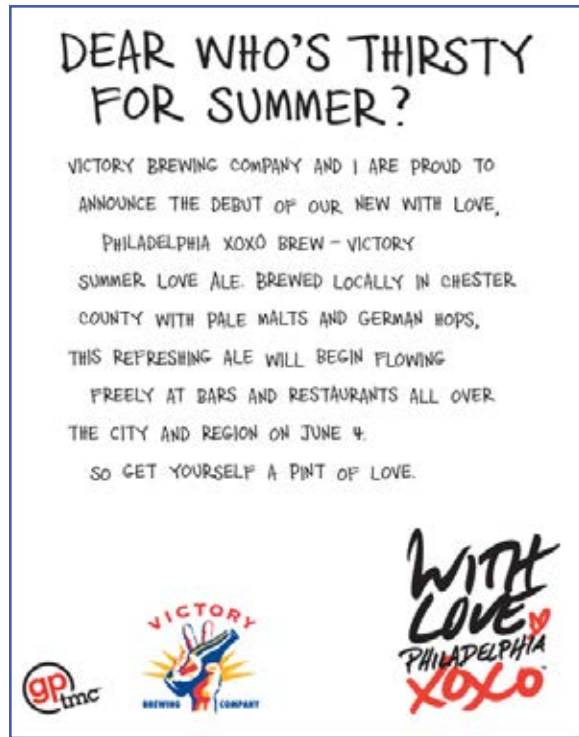 DEAR WHO'S THIRSTY
FOR SUMMER?
VICTORY BREWING COMPANY AND I ARE PROUD TO
ANNOUNCE THE DEBUT OF OUR NEW WITH LOVE,
PHILADELPHIA XOXO BREW - VICTORY
SUMMER LOVE ALE. BREWED LOCALLY IN CHESTER
COUNTY WITH PALE MALTS AND GERMAN HOPS,
THIS REFRESHING ALE WILL BEGIN FLOWING
FREELY AT BARS AND RESTAURANTS ALL OVER
THE CITY AND REGION ON JUNE 4.
SO GET YOURSELF A PINT OF LOVE.
gp
tmc
VICTORY
BREWING COMPANY
WITH
LOVE
PHILADELPHIA
XOXO